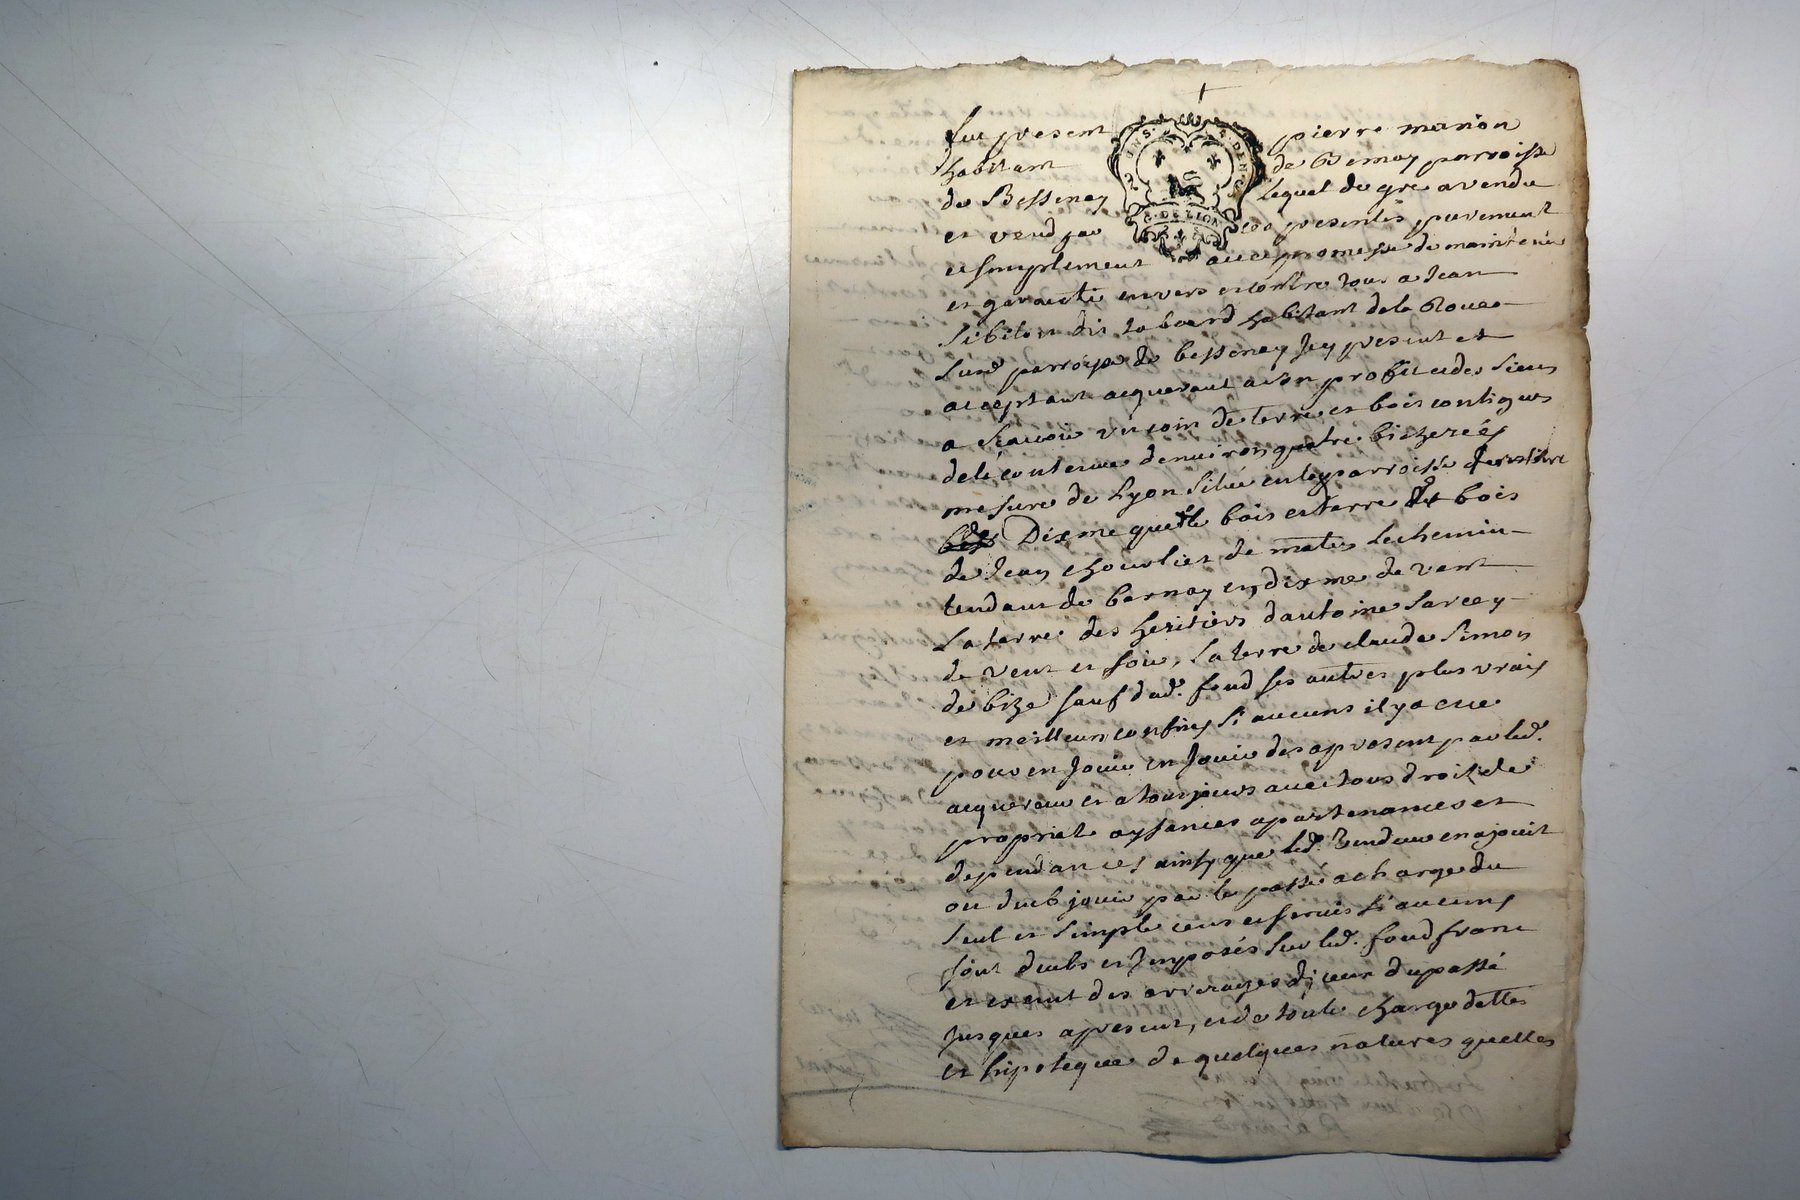 fut present pierre marion
habitant de Bernay parroisse
de Bessenay lequel de gre a vendu
et vend par ces presentes purement
et simplement avec promesse de maintenir
et garantir envers et contre tous a Jean
Sibilon dit tabard habitant de la
Susd parroisse de bessenay Icy present et
acceptant acquerant a son profit et des siens
a scavoir un coin de terre et bois contigus
de la contenue denviron quatre bicherées
mesure de Lyon située en la parroisse
Dixme que le bois et terre bois
de Jean chouvlier de matin Le chemin
tendant de bernay en dixme de vent
La terre des heritiers dantoine Sarcey
de vent et soir, La terre de claude Simon
de bize sauf dud. fond ses autres plus vrais
et meilleurs confins Si aucuns il y a
pour en Jouir en Jouir des a present par led.
acquereur et a tousjours avec tous droit de
propriet aysances apartenances et
dependances ainsy que led. Vendeur en a jouit
ou dueb jouir par le passé a charge du
Seul et Simple cens et servis Si aucuns
sont deubs et Imposés sur led. fond franc
et exent des arrerages diceux du passé
Jusques a present, et de toute charge dettes
et hipoteques de quelques natures quelles
GEN. DE LION